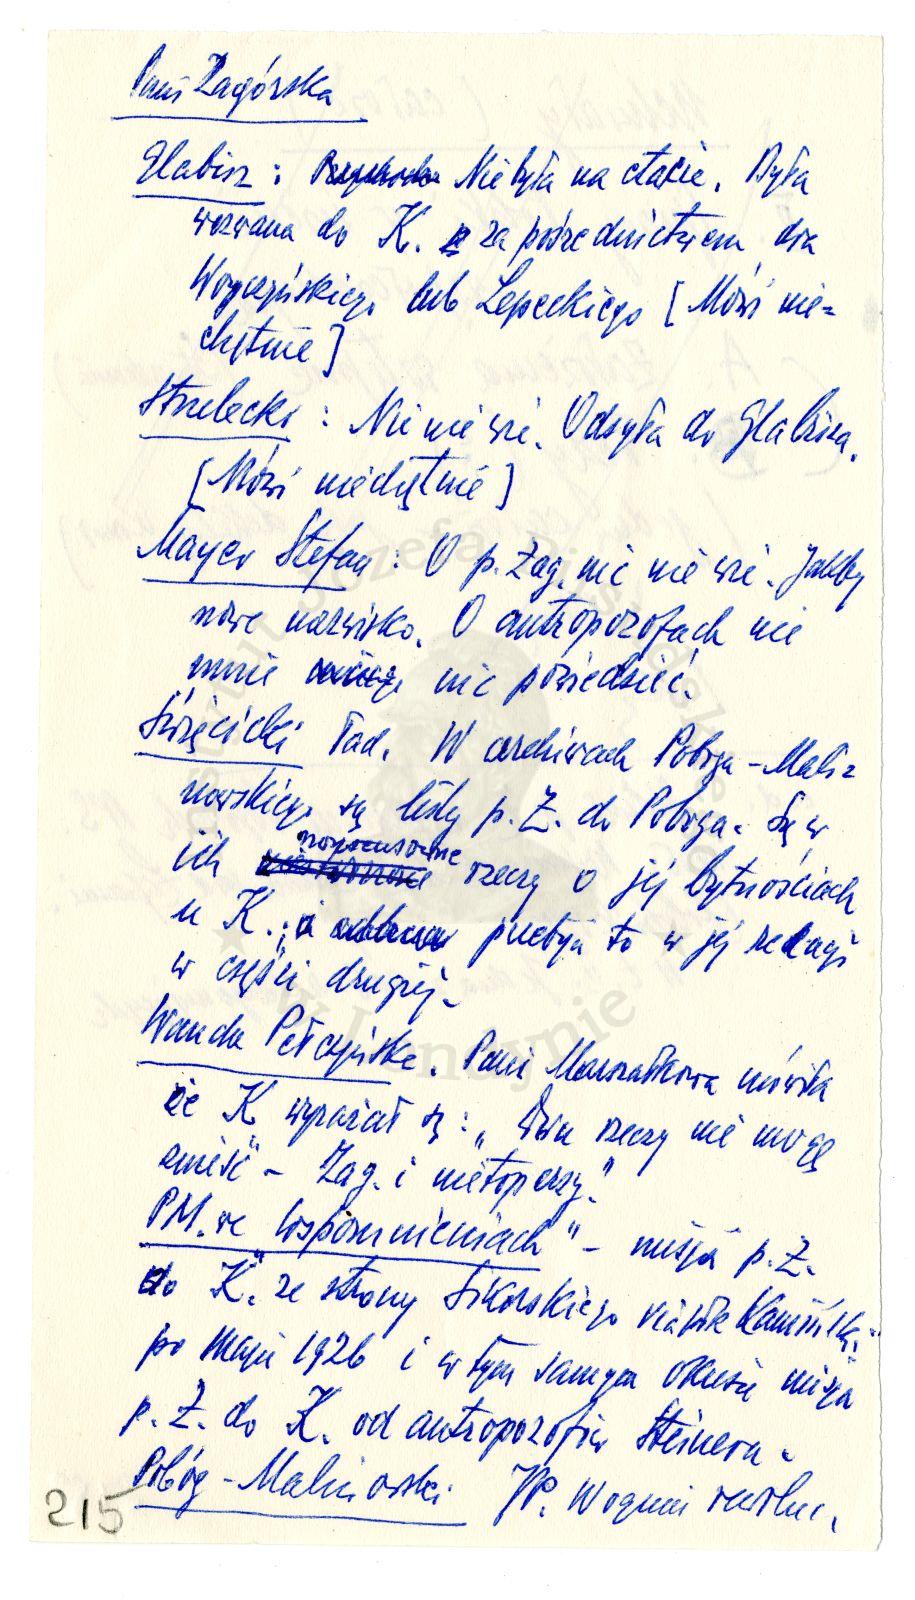 Pani Zagórska
Glabisz : Nie była na etacie. Była
wezwana do K. za pośrednictwem dra
Woyczyńskiego lub Lepeckiego [Mówi nie=
chętnie]
Strzelecki : Nic nie wie. Odsyła do Glabisza.
[Mówi niechętnie]
Mayer Stefan : O p. Zag. nic nie wie. Jakby
nowe nazwisko. O antropozofach nie
umie nic powiedzieć.
Święcicki Tad. W archiwach Poboga-Mali=
nowskiego są listy p. Z. do Poboga. Są w
ich rzeczy o jej bytnościach
u K. ; to w jej relacji
w części drugiej.
Wanda Pełczyńska. Pani Marszałkowa mówiła
że K wyrażał się : „Dwu rzeczy nie mogę
znieść" – Zag. i nietoperzy."
PM. we „Wspomnieniach" – misja p. Z.
do K. ze strony Sikorskiego
po maju 1926 i w tym samym okresie misja
p. Z. do K. od antropozofów Steinera.
Pobóg-Malinowski JP. W ogniu rewoluc.
215
Instytut Józefa Piłsudskiego
w Londynie